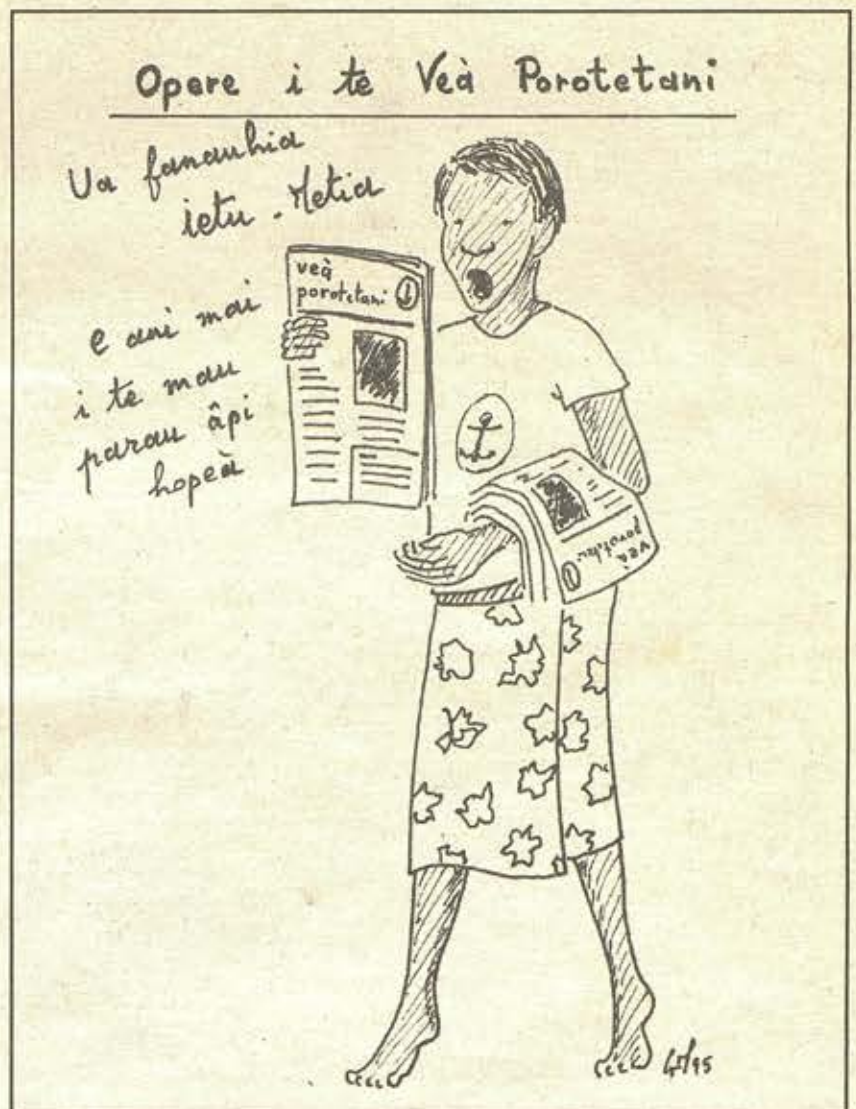 Opere i te Veà Porotetani
Ua fanauhia
ietu - Metia
e ani mai
i te mau
parau âpi
hopeà
veà
porotetani
veà
porotetani
95